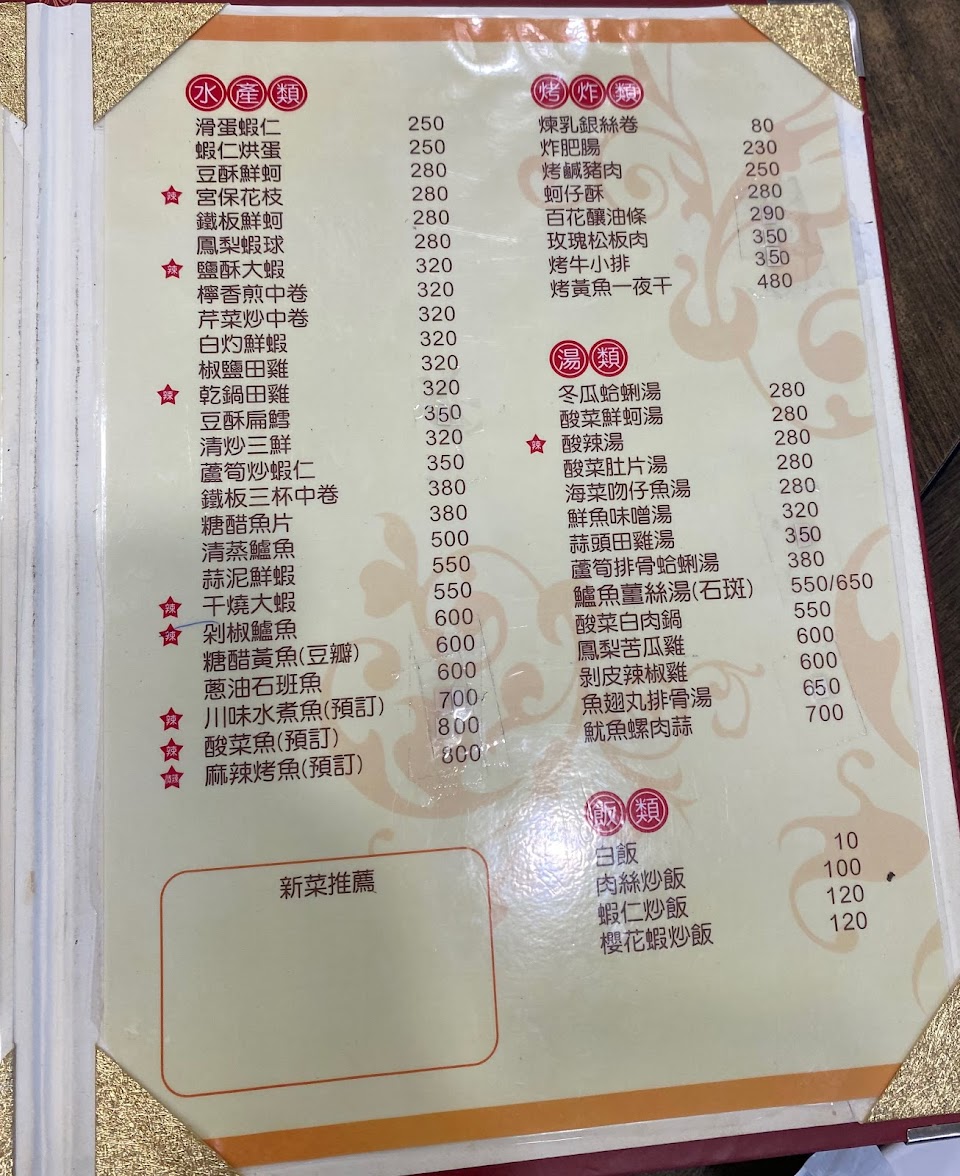 水產類
滑蛋蝦仁 250
蝦仁烘蛋 250
豆酥鮮蚵 280
辣 宮保花枝 280
鐵板鮮蚵 280
鳳梨蝦球 280
辣 鹽酥大蝦 320
檸香煎中卷 320
芹菜炒中卷 320
白灼鮮蝦 320
椒鹽田雞 320
辣 乾鍋田雞 320
豆酥扁鱈 350
清炒三鮮 320
蘆筍炒蝦仁 350
鐵板三杯中卷 380
糖醋魚片 380
清蒸鱸魚 500
蒜泥鮮蝦 550
辣 干燒大蝦 550
辣 剁椒鱸魚 600
糖醋黃魚(豆瓣) 600
蔥油石班魚 600
辣 川味水煮魚(預訂) 700
辣 酸菜魚(預訂) 800
麻辣 麻辣烤魚(預訂) 800
新菜推薦
烤炸類
煉乳銀絲卷 80
炸肥腸 230
烤鹹豬肉 250
蚵仔酥 280
百花釀油條 290
玫瑰松板肉 350
烤牛小排 350
烤黃魚一夜干 480
湯類
冬瓜蛤蜊湯 280
酸菜鮮蚵湯 280
辣 酸辣湯 280
酸菜肚片湯 280
海菜吻仔魚湯 280
鮮魚味噌湯 320
蒜頭田雞湯 350
蘆筍排骨蛤蜊湯 380
鱸魚薑絲湯(石斑) 550/650
酸菜白肉鍋 550
鳳梨苦瓜雞 600
剝皮辣椒雞 600
魚翅丸排骨湯 650
魷魚螺肉蒜 700
飯類
白飯 10
肉絲炒飯 100
蝦仁炒飯 120
櫻花蝦炒飯 120